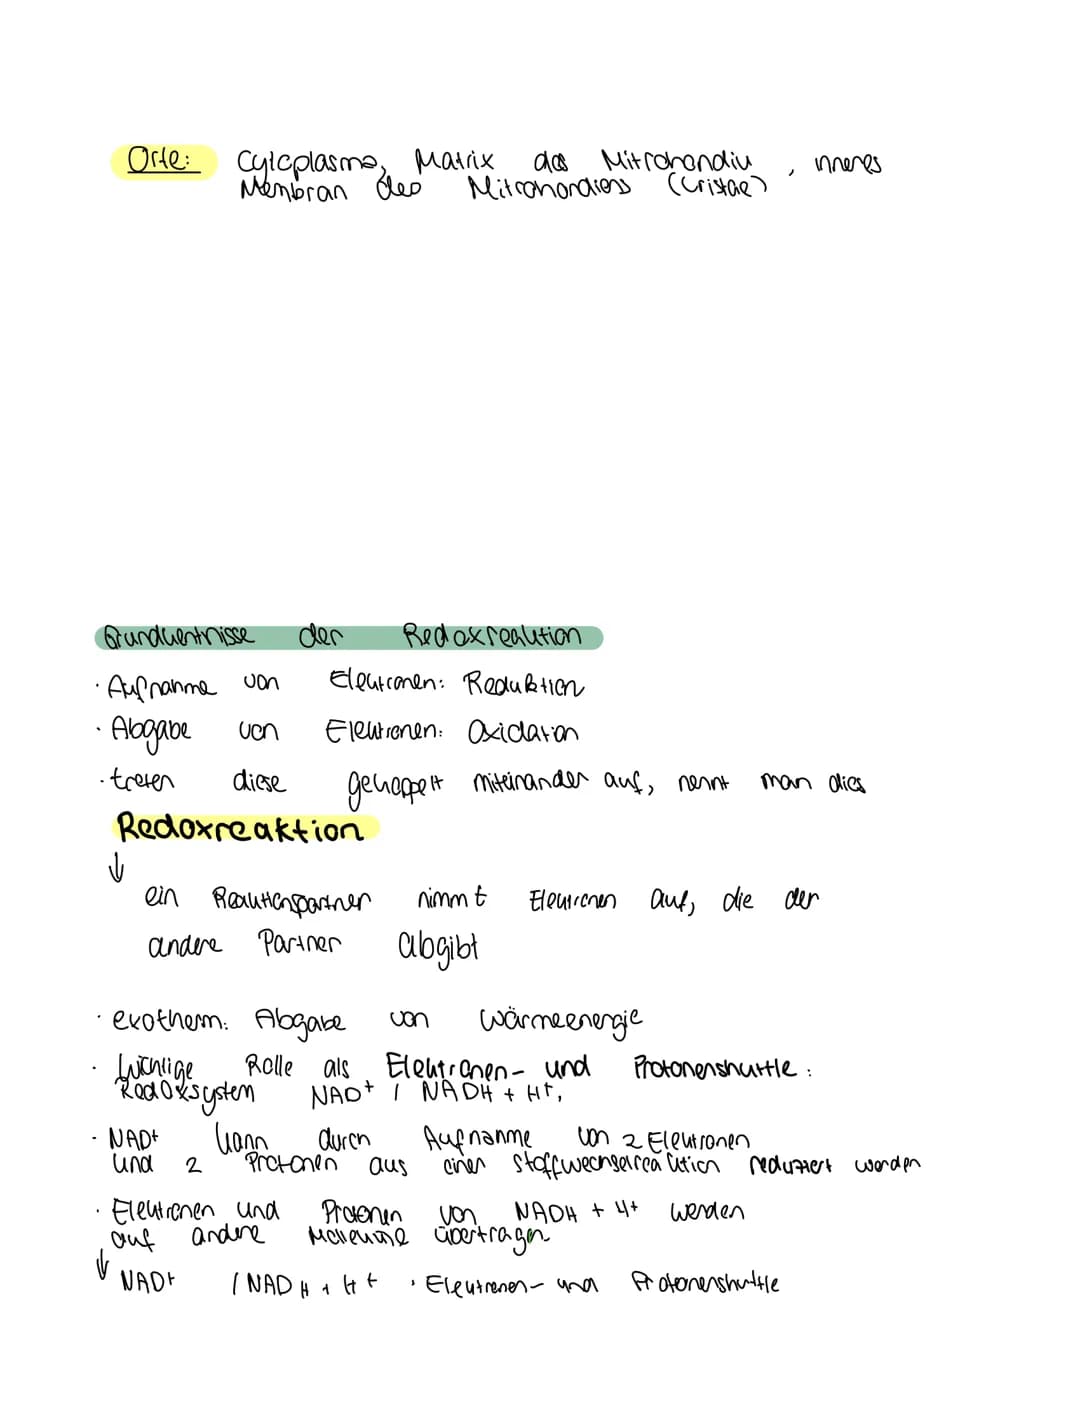 Orte: Cytoplasma, Matrix des Mitochondiu, inneres
Membran des Mitochondiens (Cristae)
Grundkentnisse der Redoxreaktion
· Aufnahme von Elektronen: Reduktion
· Abgabe von Elektronen: Oxidation
· treten diese gekoppelt miteinander auf, nennt man dies
Redoxreaktion
↓
ein Reaktionspartner nimmt Elektronen auf, die der
andere Partner abgibt
· exotherm: Abgabe von Wärmeenergie
· Wichtige Rolle als Elektronen- und Protonenshuttle:
Redoxsystem NAD+ / NADH + H+,
· NAD+ kann durch Aufnahme von 2 Elektronen
und 2 Protonen aus einer Stoffwechselreaktion reduziert werden
· Elektronen und Protonen von NADH + H+ werden
auf andere Moleküle übertragen
↓ NAD+ / NADH + H+ · Elektronen- und Protonenshuttle